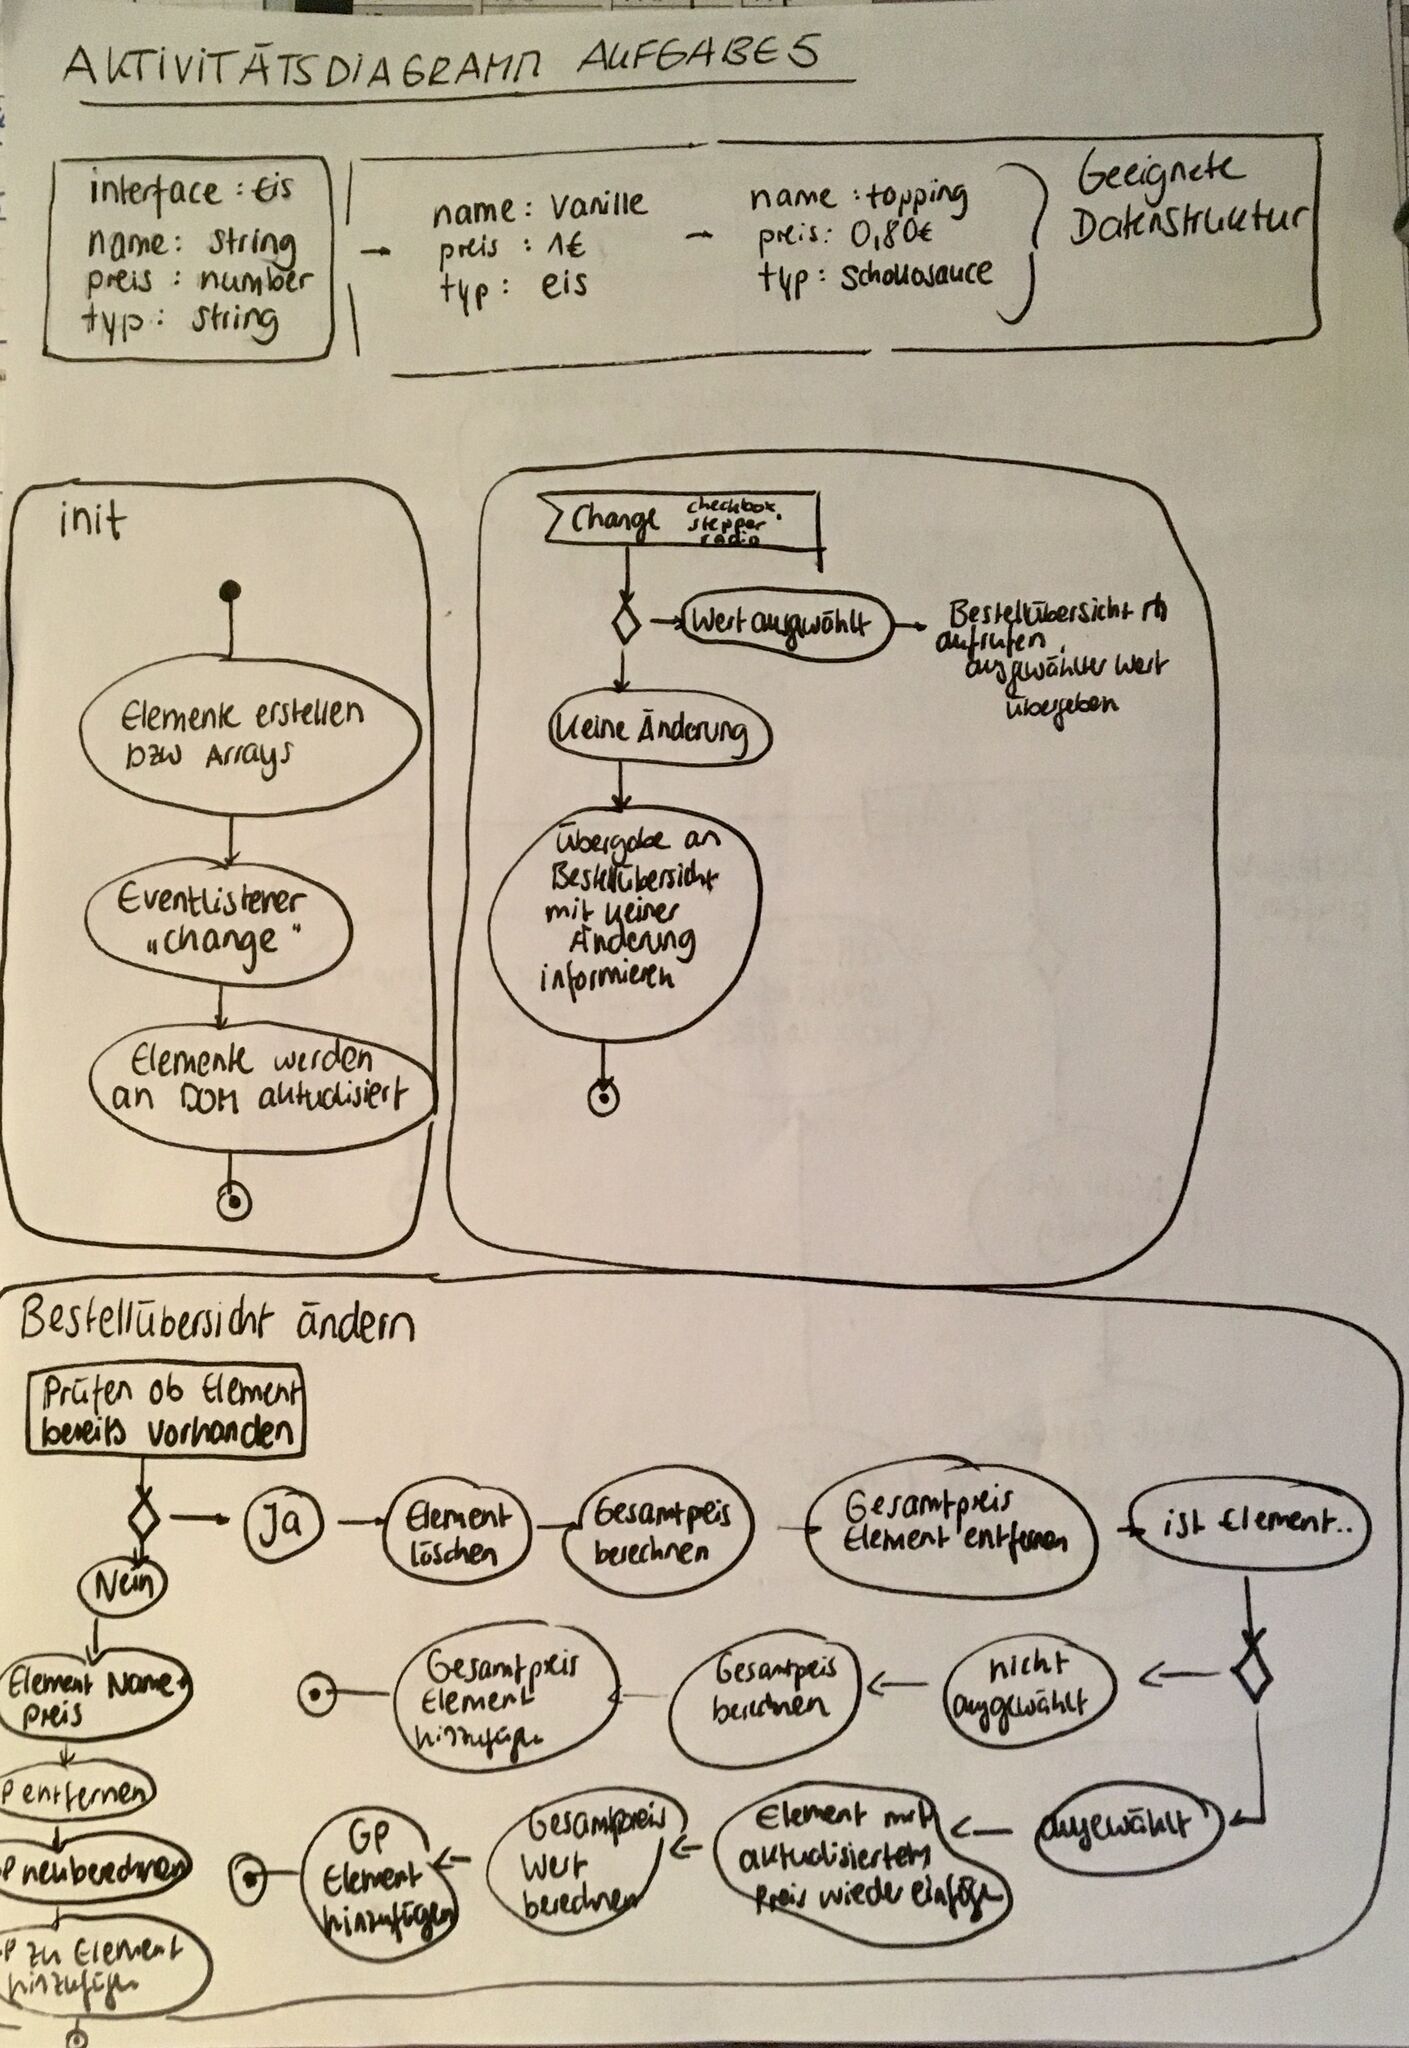 AKTIVITÄTSDIAGRAMM AUFGABE 5
interface : Eis
name: string
preis : number
typ : string
name : Vanille
preis : 1€
typ : eis
name : topping
preis : 0,80€
typ : Schokosauce
Geeignete
Datenstruktur
init
Elemente erstellen
bzw Arrays
Eventlistener
„change"
Elemente werden
an DOM aktualisiert
Change
checkbox,
stepper
radio
Wert ausgwählt
Bestellübersicht
aufrufen,
ausgewählter Wert
übergeben
Keine Änderung
Übergabe an
Bestellübersicht
mit keiner
Änderung
informieren
Bestellübersicht ändern
Prüfen ob Element
bereits vorhanden
Ja
Element
löschen
Gesamtpreis
berechnen
Gesamtpreis
Element entfernen
ist Element..
Nein
Element Name+
preis
P entfernen
P neuberechnen
P zu Element
hinzufügen
nicht
ausgewählt
Gesamtpreis
berechnen
Gesamtpreis
Element
hinzufügen
ausgewählt
Element mit
aktualisiertem
Preis wieder einfüge
Gesamtpreis
Wert
berechnen
GP
Element
hinzufügen